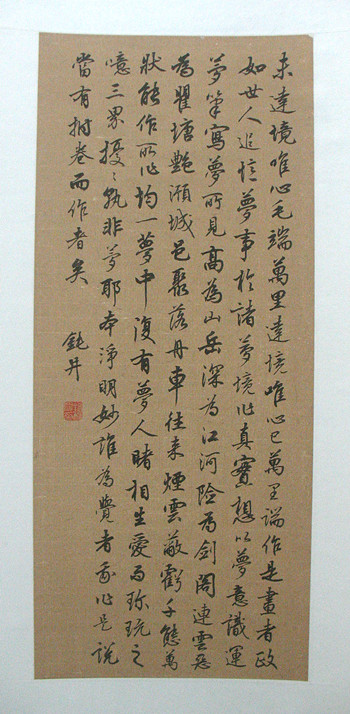 未達境唯心毛端萬里達境唯心已萬里端作是畫者政
如世人追憶夢事於諸夢境作真實想以夢意識運
夢筆寫夢所見高為山岳深為江河險為劍閣連雲惡
為瞿塘艷澦城邑聚落舟車往来煙雲蔽虧千態萬
狀能作所作均一夢中復有夢人睹相生愛而珎玩之
噫三界擾〻孰非夢耶本淨明妙誰為覺者我作是説
當有拊卷而作者矣